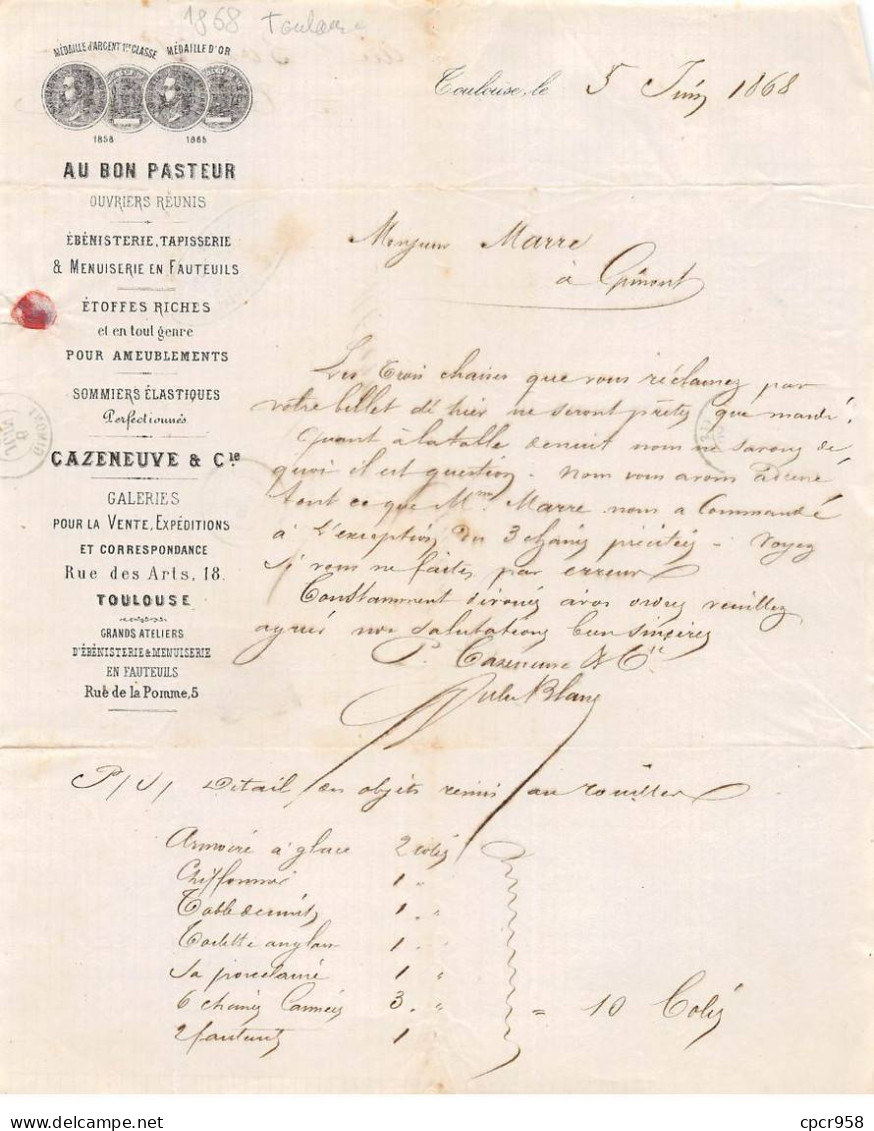 1868 Toulouse
MÉDAILLE D'ARGENT 1re CLASSE MÉDAILLE D'OR
1858 1865
AU BON PASTEUR
OUVRIERS RÉUNIS
ÉBÉNISTERIE, TAPISSERIE
& MENUISERIE EN FAUTEUILS
ÉTOFFES RICHES
et en tout genre
POUR AMEUBLEMENTS
SOMMIERS ÉLASTIQUES
Perfectionnés
CAZENEUVE & Cie
GALERIES
POUR LA VENTE, EXPÉDITIONS
ET CORRESPONDANCE
Rue des Arts, 18.
TOULOUSE
GRANDS ATELIERS
D'ÉBÉNISTERIE & MENUISERIE
EN FAUTEUILS
Rue de la Pomme, 5
Toulouse, le 5 Juin 1868
Monsieur Marre
à Gimont
Les trois chaises que vous réclamez par
votre billet d'hier ne seront prêtes que mardi.
Quant à la table de nuit nous ne savons de
quoi il est question. Nous vous avons adressé
tout ce que Mme Marre nous a commandé
à l'exception des 3 chaises précitées - Voyez
si vous ne faites pas erreur
Constamment dévoués à vos ordres veuillez
agréer nos salutations bien sincères
P. Cazeneuve & Cie
Jules Blanc
P/S/ Détail des objets remis au roulier
Armoire à glace 2 colis
Chiffonnier 1 "
Table de nuit 1 "
Toilette anglaise 1 "
Sa porcelaine 1 "
6 chaises cannées 3 "
2 fauteuils 1
= 10 Colis
GIMONT
cpcr958